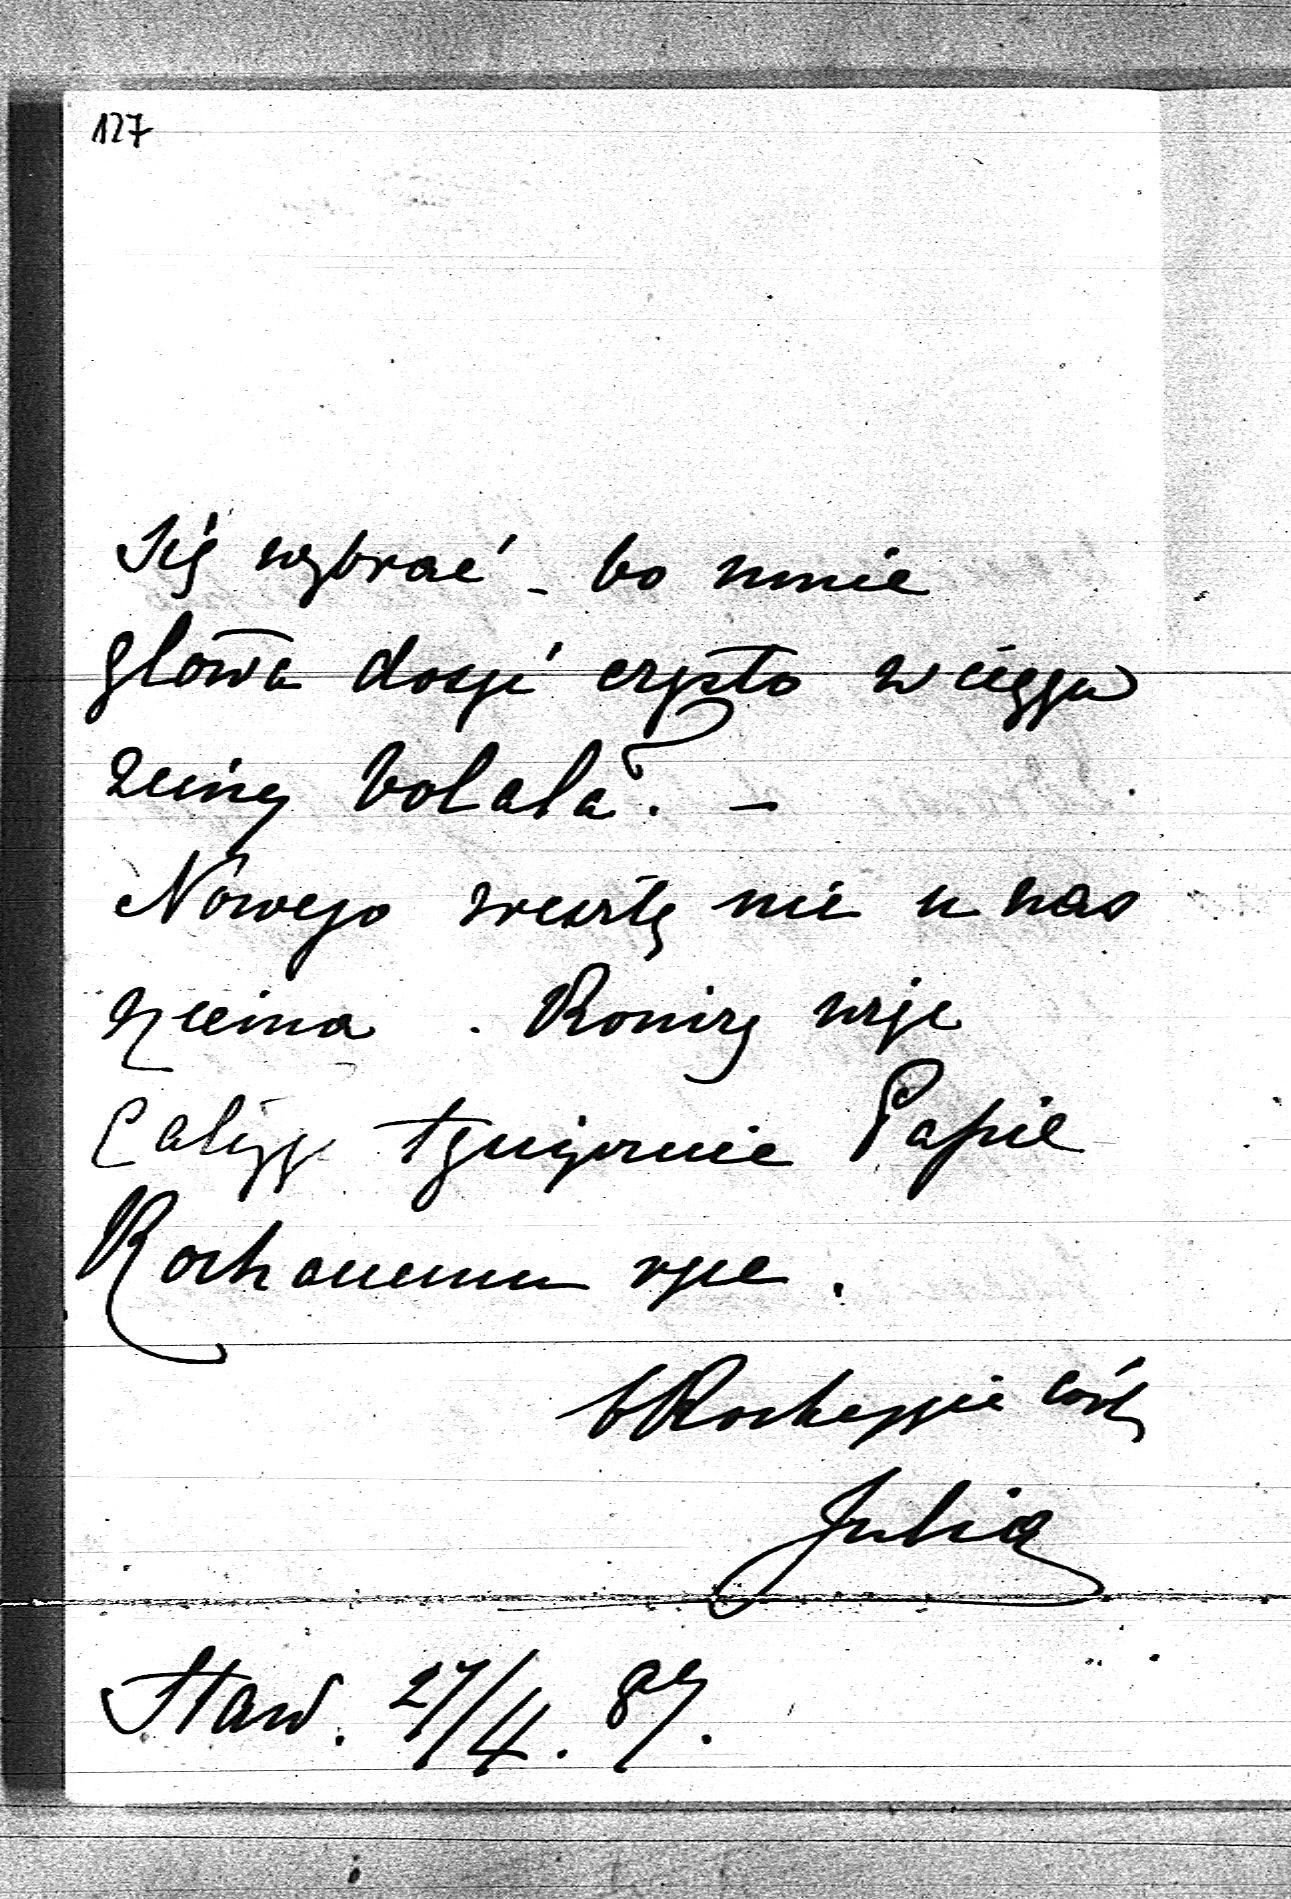 127
się wybrać – bo mnie
głowa dosyć często w ciągu
zimy bolała. –
Nowego zresztą nic u nas
niema. Kończę więc
całując Papie
Kochanemu ręce.
Kochająca córka
Julia
Staw. 27/4. 87.